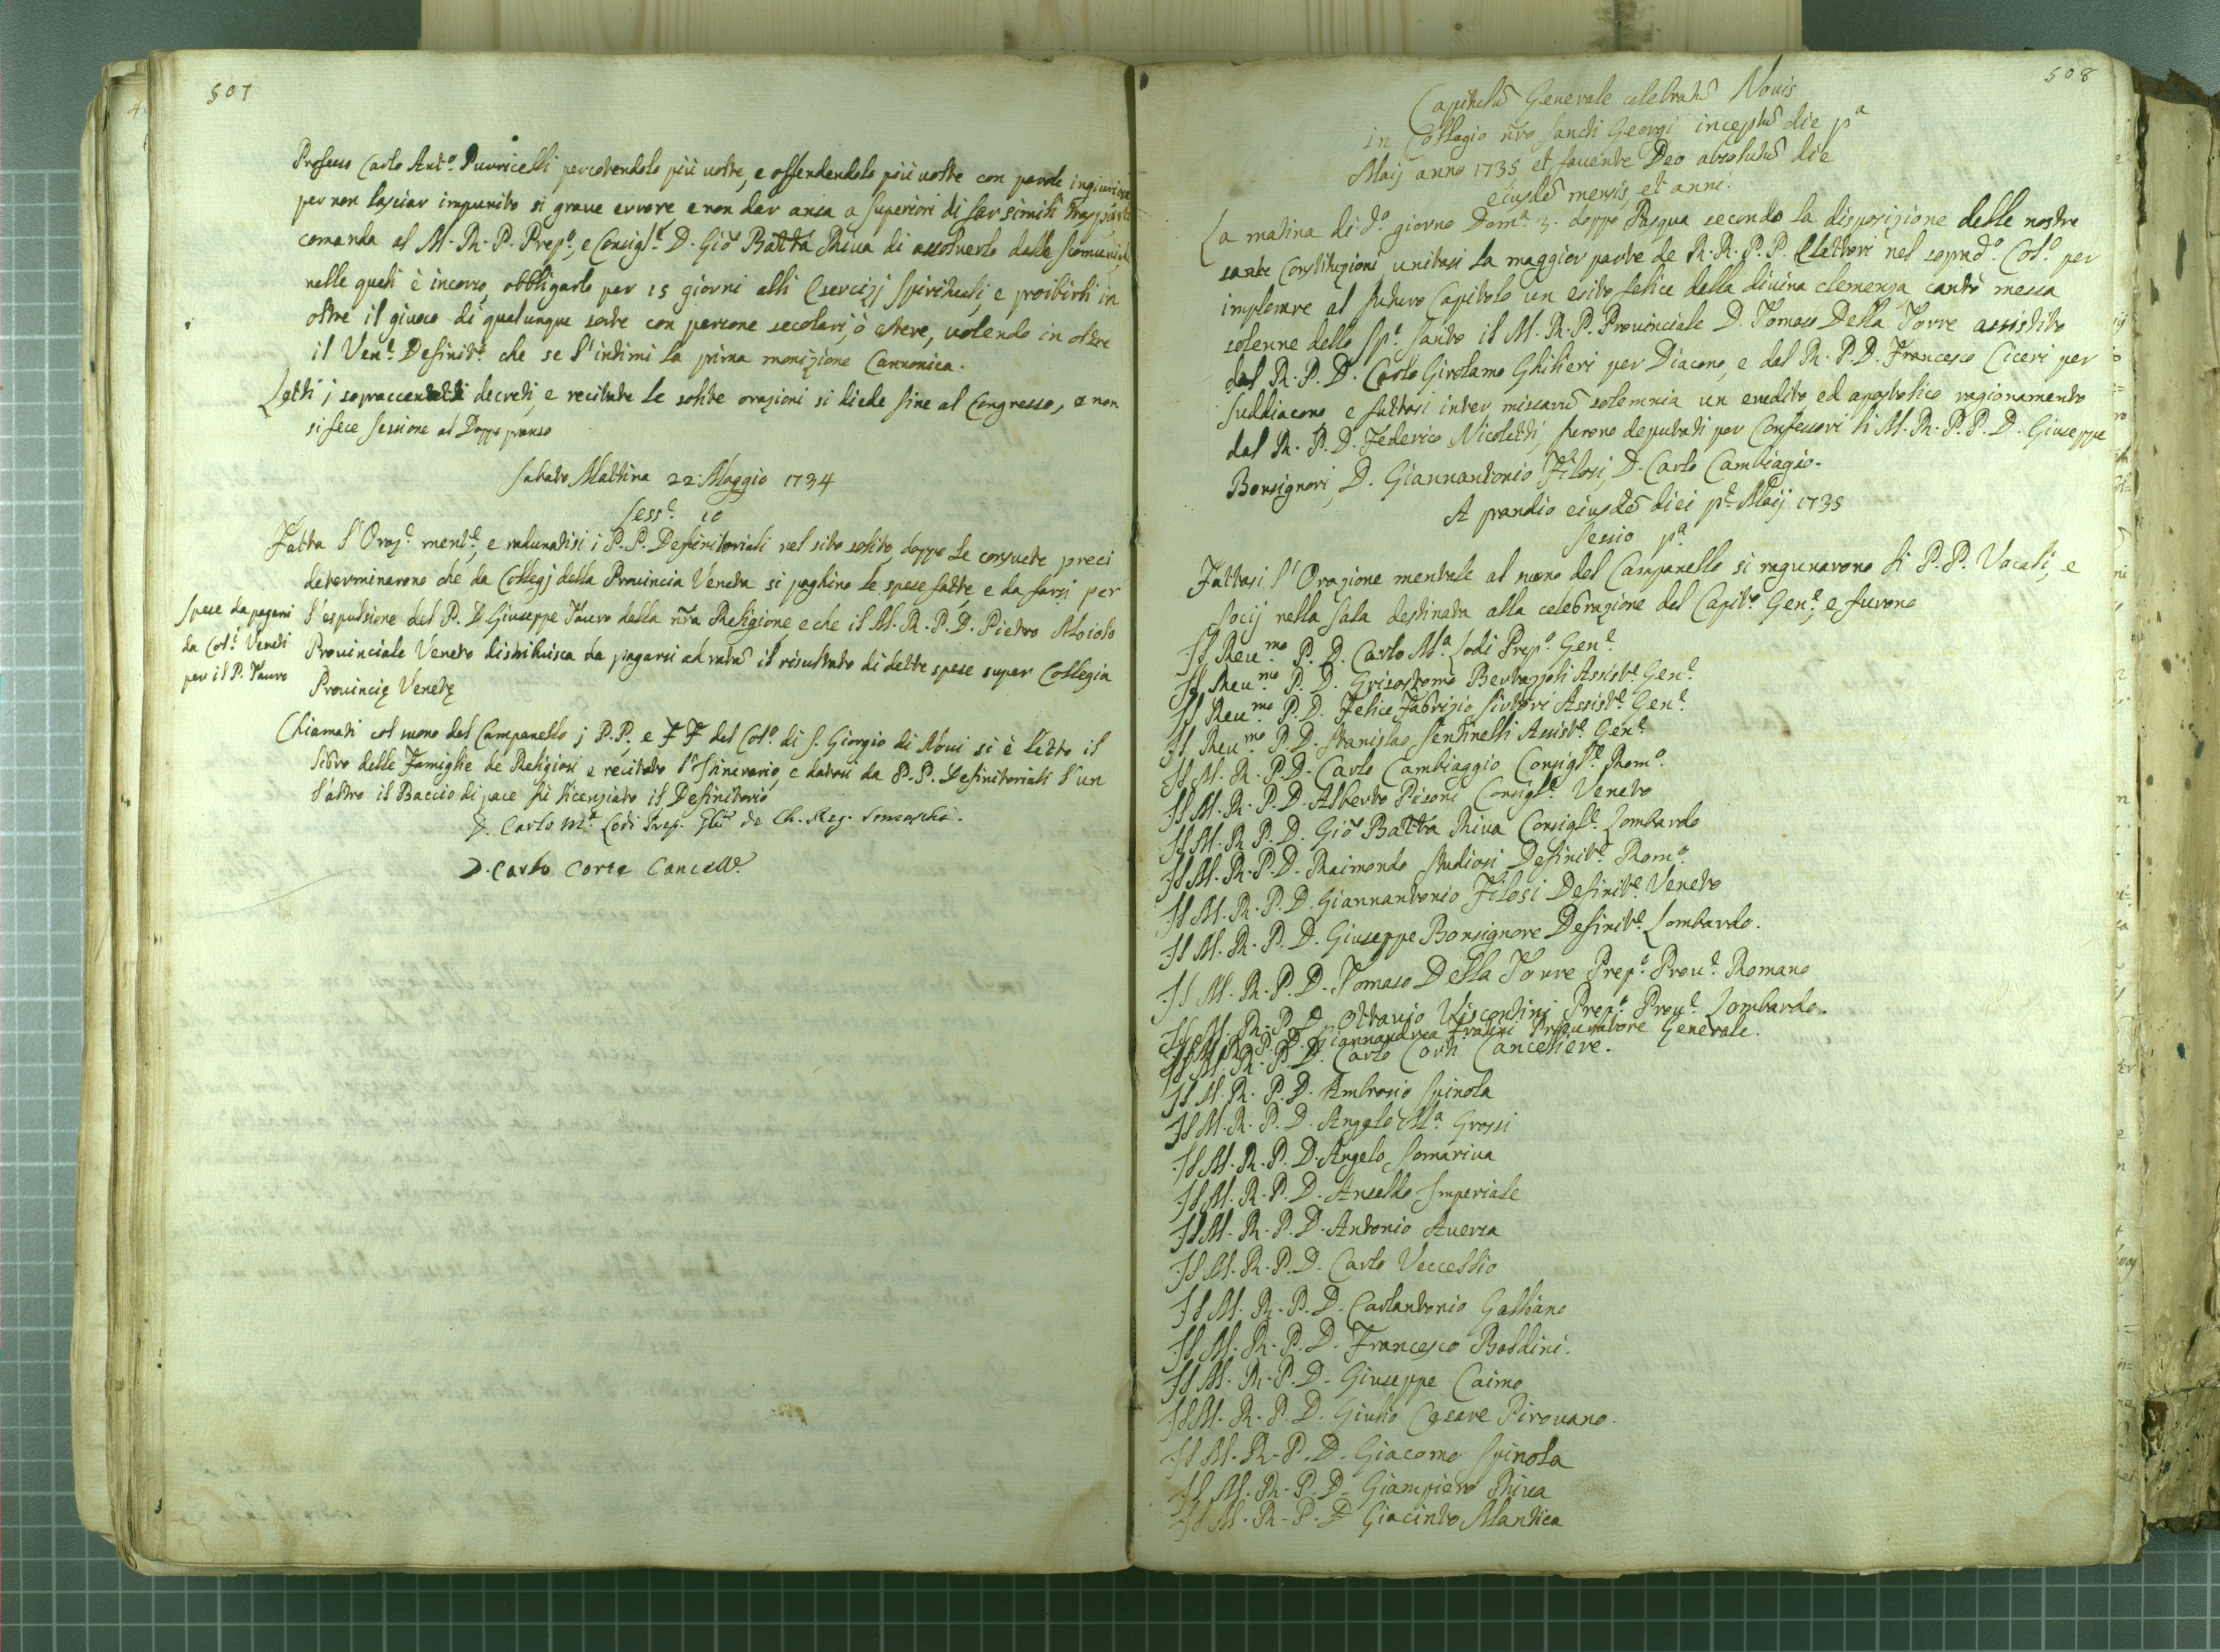 507
Professo Carlo Ant.o Puvricelli percotendolo più volte, e offendendolo più volte con parole ingiuriose
per non lasciar impunito si grave errore, e non dar ansa a superiori di far simili
comanda al M. R. P. Prep.o, e Consigl.e D. Gio Batta Riva di assolverlo dalle scomuniche
nelle quali è incorso, obbligarlo per 15 giorni alli Esercizj Spirituali, e proibirli in
oltre il giuoco di qualunque sorte con persone secolari, ò estere, volendo in oltre
il Ven.e Definit.o che se l'intimi la prima monizione Cannonica.
Letti i sopraccennati decreti, e recitate le solite orazioni si diede fine al Congresso, e non
si fece sessione al Doppo pranso
Sabato Mattina 22 Maggio 1734
Sess.e 10
Fatta l'Oraz.e ment.e, e radunatisi i P.P. Definitoriali nel sito solito, doppo le consuete preci
determinarono che da Collegj della Provincia Veneta si paghino le spese fatte, e da farsi per
Spese da pagarsi
da Col.i Veneti
per il P. Tauro
l'espulsione del P. D. Giuseppe Tauro dalla nra Religione, e che il M. R. P. D. Pietro Moiolo
Provinciale Veneto distribuisca da pagarsi ad ratã il risultato di dette spese super Collegia
Provincię Venetę
Chiamati col suono del Campanello i P.P. e F F del Col.o di S. Giorgio di Novi si è letto il
libro delle Famiglie de Religiosi e recitato l'Itinerario, e datosi da P.P. Definitoriali l'un
l'altro il Baccio di pace fù licenziato il Definitorio
D. Carlo M.a Lodi Prep. Glis de Ch. Reg. Somascha.
D. Carlo Corte Cancell.e
508
Capitulũ Generale celebratũ Novis
in Collegio nro Sancti Georgi inceptũ die p.a
Maij anno 1735 et favente Deo absolutũ die
eiusdẽ mensis, et anni.
La matina di d.o giorno Dom.a 3. doppo Pasqua secondo la disposizione delle nostre
sante Constituzioni unitasi la maggior parte de R. R. P. P. Elettori nel soprad.o Col.o per
implorare al futuro Capitolo un esito felice della divina clemenza cantò messa
solenne dello Sp.o Santo il M. R. P. Provinciale D. Tomaso Della Torre assistito
dal R. P. D. Carlo Girolamo Ghilieri per Diacono, e dal R. P. D. Francesco Ciceri per
Suddiacono e fattosi inter missarũ solemnia un erudito ed apostolico ragionamento
dal R. P. D. Federico Nicoletti, furono deputati per Confessori li M. R. P. P. D. Giuseppe
Bonsignori, D. Giannantonio Filosi, D. Carlo Cambiagio.
A prandio eiusdẽ diei p.e Maij 1735
Sessio p.a
Fattasi l'Orazione mentale al suono del Campanello si ragunarono li P. P. Vocali, e
Socij nella Sala destinata alla celebrazione del Capit.o Gen.e, e furono
Il Reu.mo P. D. Carlo M.a Lodi Prep.o Gen.e
Il Reu.mo P. D. Grisostomo Bertazzoli Assist.e Gen.e
Il Reu.mo P. D. Felice Fabrizio Sirtori Assist.e Gen.e
Il Reu.mo P. D. Stanislao Sentinelli Assist.e Gen.e
Il M. R. P. D. Carlo Cambiaggio Consigl.e Rom.o
Il M. R. P. D. Alberto Pisoni Consigl.e Veneto
Il M. R. P. D. Gio Batta Riva Consigl.e Lombardo
Il M. R. P. D. Raimondo Studiosi Definit.e Rom.o
Il M. R. P. D. Giannantonio Filosi Definit.e Veneto
Il M. R. P. D. Giuseppe Bonsignore Definit.e Lombardo.
Il M. R. P. D. Tomaso Della Torre Prep.o Prou.e Romano
Il M. R. P. D. Ottavio Viscontini Prep.o Prou.e Lombardo.
Il M. R. P. D. Giannandrea Frasini Procuratore Generale.
Il M. R. P. D. Carlo Corti Cancelliere.
Il M. R. P. D. Ambrosio Spinola
Il M. R. P. D. Angelo M.a Grossi
Il M. R. P. D. Angelo Somariva
Il M. R. P. D. Ansaldo Imperiale
Il M. R. P. D. Antonio Aversa
Il M. R. P. D. Carlo Veccellio
Il M. R. P. D. Carlantonio Galbiano
Il M. R. P. D. Francesco Baldini.
Il M. R. P. D. Giuseppe Caimo
Il M. R. P. D. Giulio Cesare Pirovano.
Il M. R. P. D. Giacomo Spinola
Il M. R. P. D. Giampiero Riva
Il M. R. P. D. Giacinto Mantica